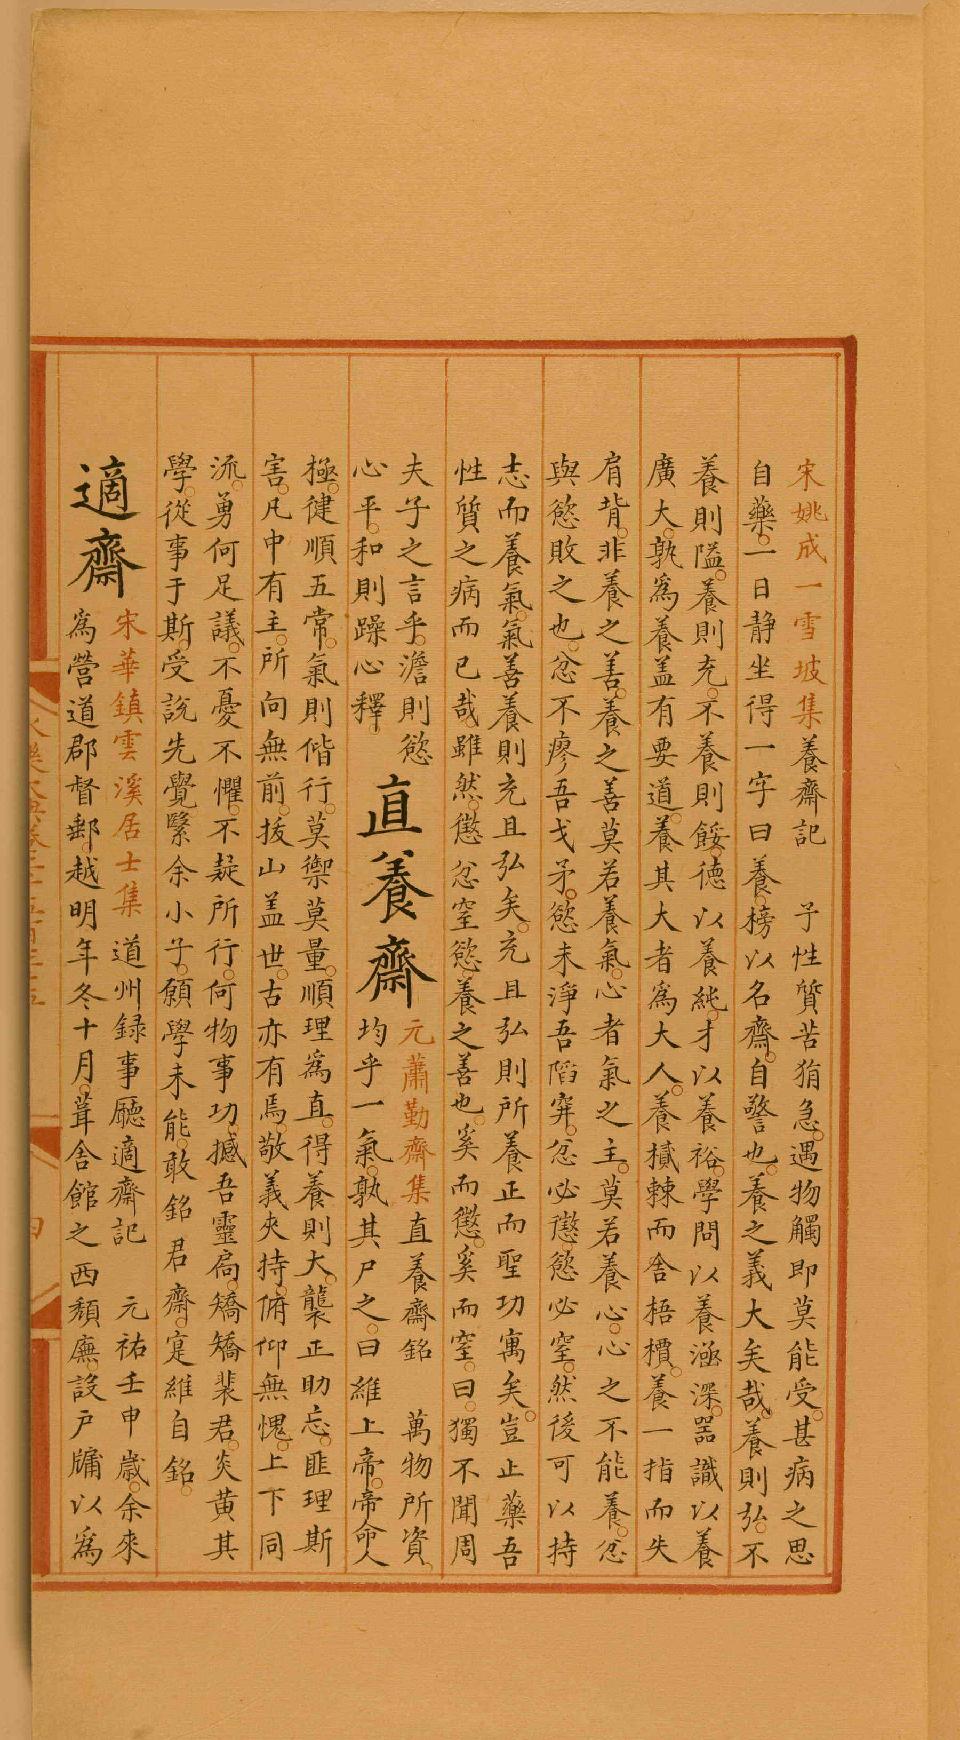 宋姚成一雪坡集養齋記　予性質苦狷急遇物觸即莫能受甚病之思
自藥一日静坐得一字曰養榜以名齋自警也養之義大矣哉養則弘不
養則隘養則充不養則餒德以養純才以養裕學問以養涵深器識以養
廣大孰爲養盖有要道養其大者爲大人養樲棘而舍梧檟養一指而失
肩背非養之善養之善莫若養氣心者氣之主莫若養心心之不能養忿
與慾敗之也忿不廖吾戈矛慾未淨吾陷穽忿必懲慾必窒然後可以持
志而養氣氣善養則充且弘矣充且弘則所養正而聖功寓矣豈止藥吾
性質之病而已哉雖然懲忿窒慾養之善也奚而懲奚而窒曰獨不聞周
夫子之言乎澹則慾
心平和則躁心釋
直養齋
元蕭勤齋集直養齋銘　萬物所資
均乎一氣孰其尸之曰維上帝帝命人
極健順五常氣則偕行莫禦莫量順理爲直得養則大襲正助忘匪理斯
害凡中有主所向無前拔山盖世古亦有焉敬義夾持俯仰無愧上下同
流勇何足議不憂不懼不疑所行何物事功撼吾靈扃矯矯裴君炎黄其
學從事于斯受説先覺緊余小子願學未能敢銘君齋寔維自銘
適齋
宋華鎮雲溪居士集　道州録事廳適齋記　元祐壬申歲余來
爲營道郡督郵越明年冬十月葺舍館之西頽廡設戸牖以爲